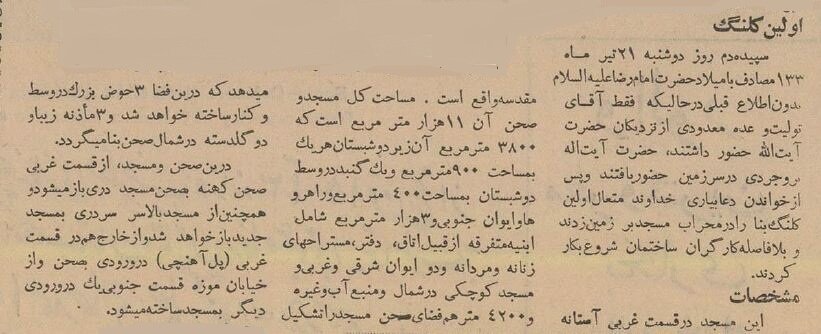 اولین کلنگ
سپیده‌دم روز دوشنبه ۲۱ تیر ماه
۱۳۳ مصادف با میلاد حضرت امام رضا علیه السلام
بدون اطلاع قبلی در حالیکه فقط آقای
تولیت و عده معدودی از نزدیکان حضرت
آیت‌الله حضور داشتند، حضرت آیت‌اله
بروجردی در سرزمین حضور یافتند و پس
از خواندن دعا بیاری خداوند متعال اولین
کلنگ بنا را در محراب مسجد بر زمین زدند
و بلافاصله کارگران ساختمان شروع بکار
کردند.
مشخصات
این مسجد در قسمت غربی آستانه
مقدسه واقع است . مساحت کل مسجد و
صحن آن ۱۱ هزار متر مربع است که
۳۸۰۰ متر مربع آن زیر دو شبستان هر یك
بمساحت ۹۰۰ متر مربع و یك گنبد در وسط
دو شبستان بمساحت ۴۰۰ متر مربع و راهرو
ها و ایوان جنوبی و ۳ هزار متر مربع شامل
ابنیه متفرقه از قبیل اتاق، دفتر، مستراحهای
زنانه و مردانه و دو ایوان شرقی و غربی و
مسجد کوچکی در شمال و منبع آب و غیره
و ۴۲۰۰ متر هم فضای صحن مسجد را تشکیل
میدهد که درین فضا ۳ حوض بزرك در وسط
و کنار ساخته خواهد شد و ۳ مأذنه زیبا و
دو گلدسته در شمال صحن بنا میگردد.
درین صحن و مسجد، از قسمت غربی
صحن کهنه بصحن مسجد دری باز میشود و
همچنین از مسجد بالاسر سردری بمسجد
جدید باز خواهد شد و از خارج هم در قسمت
غربی (پل آهنچی) در ورودی صحن و از
خیابان موزه قسمت جنوبی یك در ورودی
دیگر بمسجد ساخته میشود.